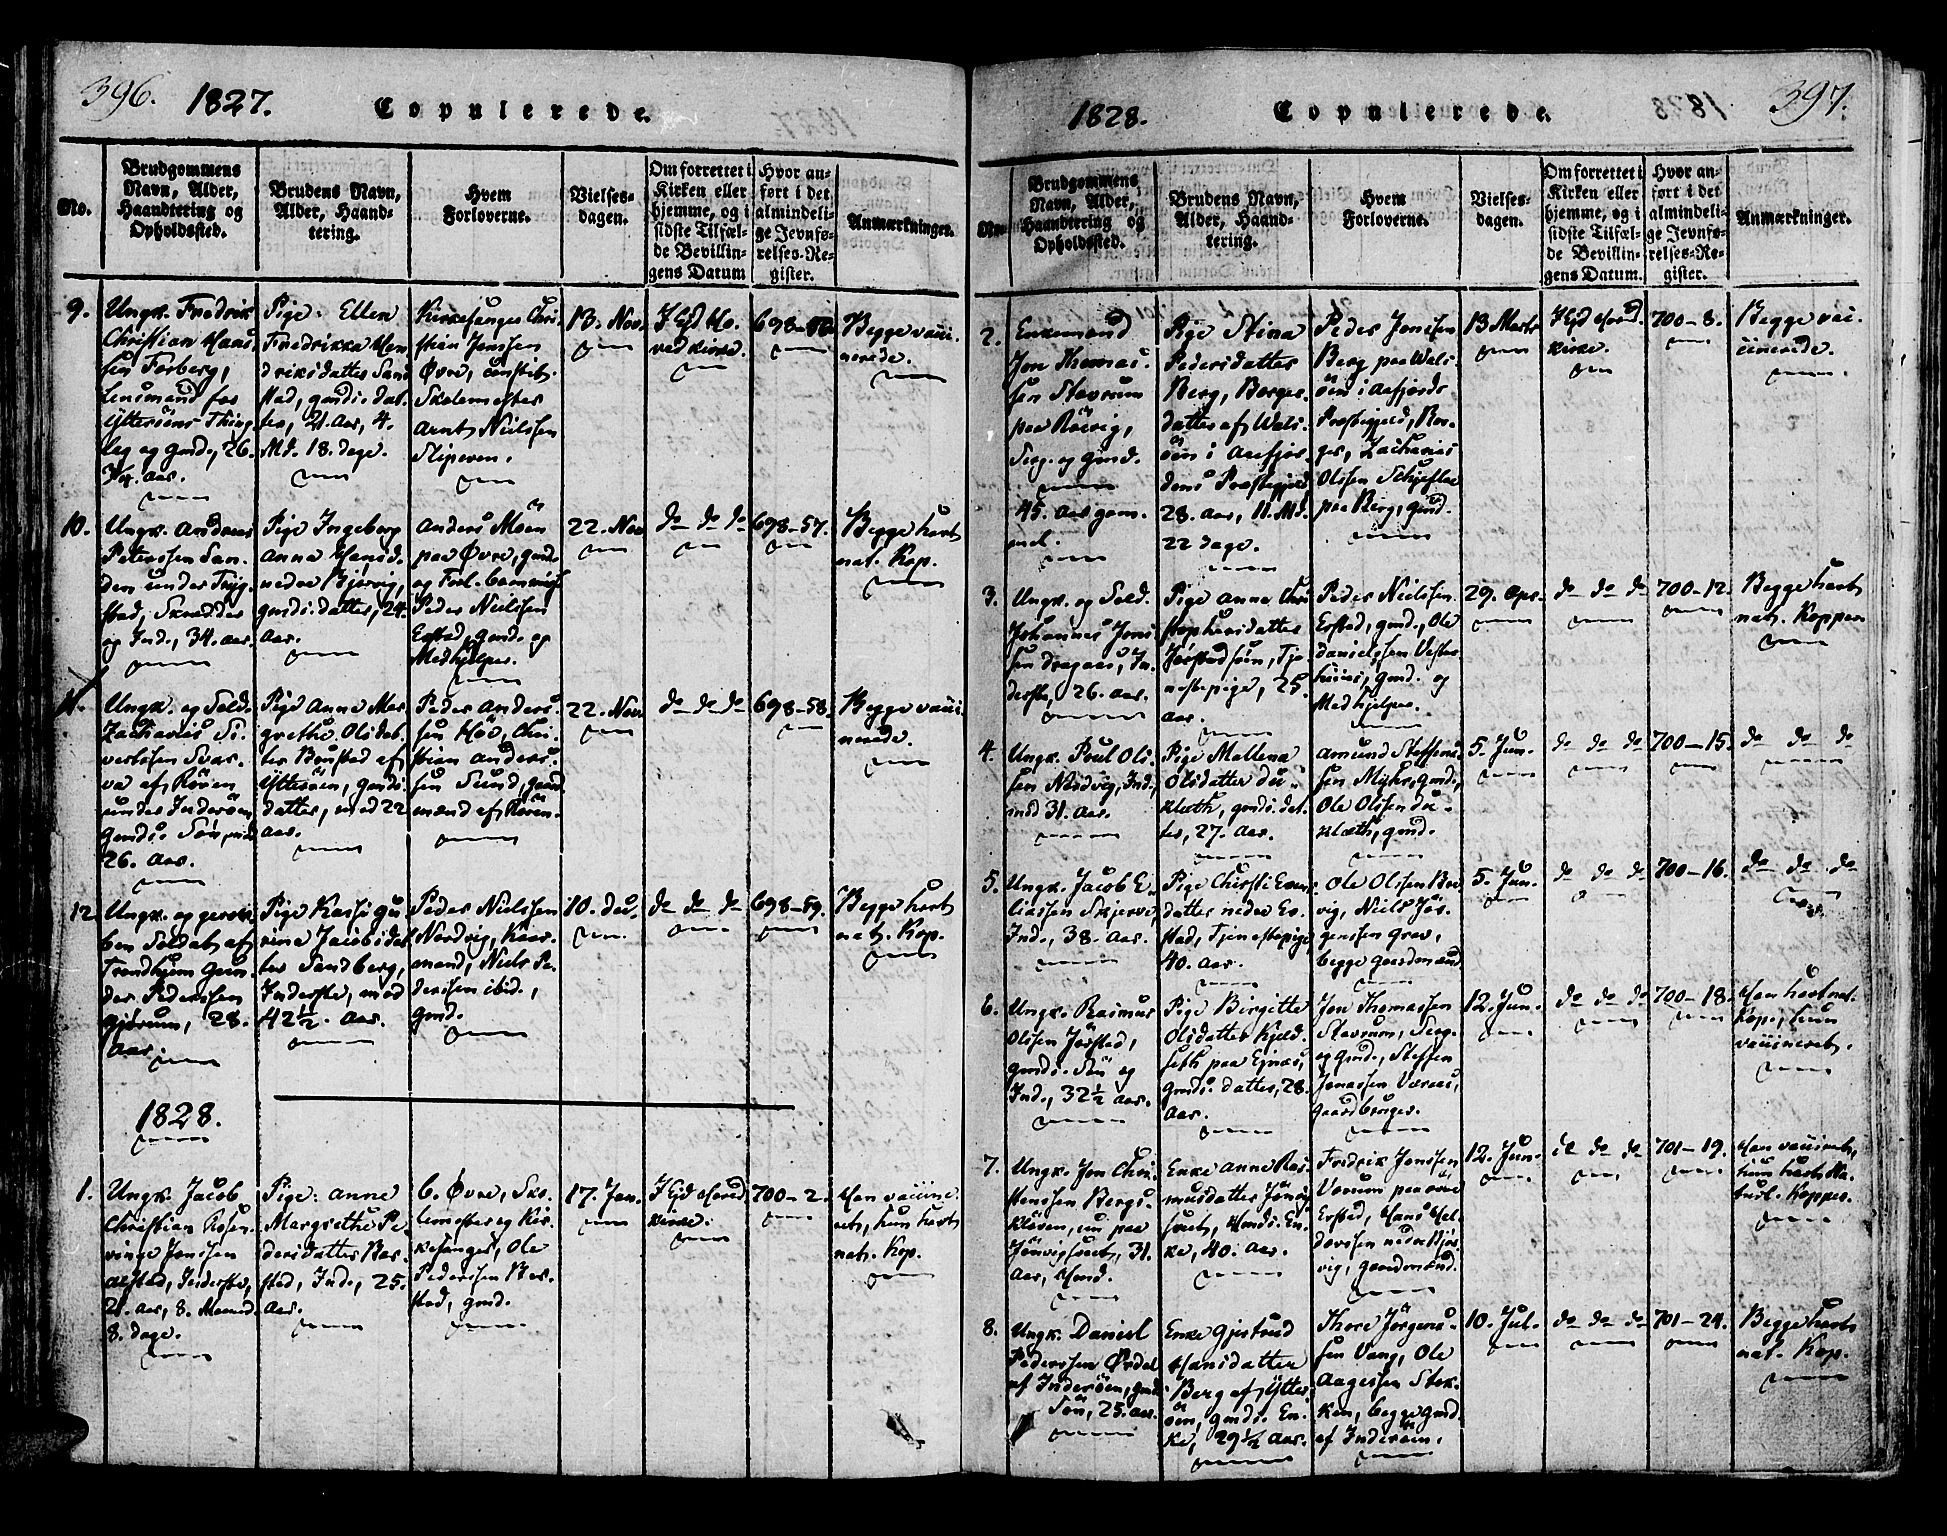 396. 1827. Copulerede.
No.
Brudgommens
Navn, Alder,
Haandtering og
Opholdssted.
Brudens Navn,
Alder, Haand-
tering.
Hvem
Forloverne.
Vielses-
dagen.
Om forrettet i
Kirken eller
hjemme, og i
sidste Tilfæl-
de Bevillin-
gens Datum
Hvor an-
ført i det
almindeli-
ge Jevnfø-
relses-Re-
gister.
Anmærkninger.
9.
Ungk. Fredrik
Christian Hans-
sen Forberg,
Lensmand for
Ytterøens Thing-
lag og gmd., 26.
3/4. Aar.
Pige: Ellen
Fredrikka Hen-
driksdatter Sand-
stad, gmds. dat-
ter, 21. Aar, 4.
Md. 18. dage.
Kirkesanger Chri-
stian Jenssen
Øvre, constit.
Skolemester
Arnt Nielssen
13. Nov.
698-56
Begge vacci-
nerede.
10.
Ungk. Andreas
Peterssen San-
den under
stad, Skrædder
og Ind., 34. Aar.
Pige Ingeborg
Anna Hansd.
nedre Bjørvig,
gmds. datter, 24.
Aar.
Anders Moen
paa Øvre, gmd.
og Forl. Commiss.
Peder Nielssen
Erstad, gmd. og
Medhjelper.
22. Nov.
do do do
698-57.
Begge havt
nat. Kop.
11.
Ungk. og Sold.
Zacharias Si-
vertssen Svar-
va af Røren
under Inderøen
Gmds. Søn, med
26. Aar.
Pige Anna Mar-
grethe Olsdat-
ter Bunstad af
Ytterøen, gmds.
datter, med 22
Aar.
Peder Anders-
sen Høe, Chri-
stian Anders-
sen Sund, gaard-
mænd af Røren.
22. Nov.
do do do
698-58.
Begge vacci-
nerede.
12
Ungk. og
Soldat af
Trondhjem Gun-
der Pederssen
Gjørum, 28.
Aar.
Pige
Jacobsdat-
ter Sandberg,
Inderste, med
42½ Aar.
Peder Nielssen
Nordvig, Kaar-
mand, Niels Pe-
derssen ibid.,
gmd.
10. de
do do do
698-59.
Begge havt
nat. Kop.
1828.
1.
Ungk. Jacob
Christian Rosen-
vinge Jenssen
Aalstad, Inderste,
21. Aar, 8. Maaned.
8. dage.
Pige: Anne
Margrethe Pe-
dersdatter Bar-
stad, Ind., 25.
Aar.
C. Øvre, Sko-
lemester og Kir-
kesanger, Ole
Pederssen Bar-
stad, gmd.
17. Jan.
Kirke.
700-2.
Han vaccine-
ret, hun havt
nat. Kop.
1828. Copulerede. 397.
No.
Brudgommens
Navn, Alder,
Haandtering og
Opholdssted.
Brudens Navn,
Alder, Haand-
tering.
Hvem
Forloverne.
Vielses-
dagen.
Om forrettet i
Kirken eller
hjemme, og i
sidste Tilfæl-
de Bevillin-
gens Datum.
Hvor an-
ført i det
almindeli-
ge Jevnfø-
relses-Re-
gister.
Anmærkninger.
2.
Enkemand
Jon Thomas-
sen Stavrum
paa Røvig,
Serg. og Gmd.
45. Aar gam-
mel.
Pige Stina
Pedersdatter
Berg, Borger-
datter af Wals-
øen i Aafjor-
dens Præstegjeld
28. Aar, 11. Md.
22 dage.
Peder Jonssen
Berg paa Wals-
øen i Aafjords
Præstegjeld, Bor-
ger, Zacharias
Olssen Schjefloe
paa Berg, gmd.
13 Marts
kirke.
700-8.
Begge vac-
cinerede.
3.
Ungk. og Sold.
Johannes Jons-
sen Aagaas, In-
derste, 26. Aar.
Pige Anna Chri-
stophersdatter
Jørstadsøen, Tje-
nestepige, 25.
Aar.
Peder Nielssen
Erstad, gmd., Ole
Danielssen Vester-
huus, gmd. og
Medhjelper.
29. Apr.
do do do
700-12.
Begge havt
nat. Kopper
4.
Ungk. Poul Ols-
sen Nordvig, Ind.,
med 31. Aar.
Pige Mallena
Olsdatter du-
klæth, gmds. dat-
ter, 27. Aar.
Amund Steffens-
sen Myhr, gmd.,
Ole Olssen du-
klæth, gmd.
5. Jun.
do do do
700-15.
do do do
5.
Ungk. Jacob E-
liassen Skjerve,
Ind., 38. Aar.
Pige Chirsti Evens-
datter nedre Er-
stad, Tjenestepige,
40. Aar.
Ole Olssen Rør-
vig, Niels Jør-
genssen Grav,
begge gaardmænd
5. Jun.
do do do
700-16.
do do do
6.
Ungk. Rasmus
Olssen Jørstad,
gmds. Søn og
Ind., 32½ Aar.
Pige Birgitte
Olsdatter Kjeld-
seth paa Ejnæs,
gmds. datter, 28.
Aar.
Jon Thomassen
Stavrum, Serg.
og gmd., Steffen
Jonassen Væraas,
gaardbruger.
12. Jun.
do do do
700-18.
Han havt nat.
Kop., hun
vaccineret.
7.
Ungk. Jon Chri-
stenssen Bergs-
kleven, nu paa
Jønvigsvet, 31.
Aar, Hmd.
Enke Anne Ras-
musdatter Jønvig-
svet, Hmds. En-
ke, 40. Aar.
Fredrik Jonssen
Værum paa øvre
Erstad, Hans Hal-
dorssen nedre Bjør-
vig, gaardmænd.
12. Jun.
do do do
701-19.
Han vaccineret,
hun havt Na-
turl. Kopper.
8.
Ungk. Daniel
Pederssen Ørdal
af Inderøen, gmds.
Søn, 25. Aar.
Enke Gjertrud
Hansdatter
Berg af Ytter-
øen, gmds. En-
ke, 29½ Aar.
Thore Jørgens-
sen Vang, Ole
Aagessen Stok-
ken, begge gmd.
af Inderøen.
10. Jul.
do do do
701-24.
Begge havt
nat. Kop.